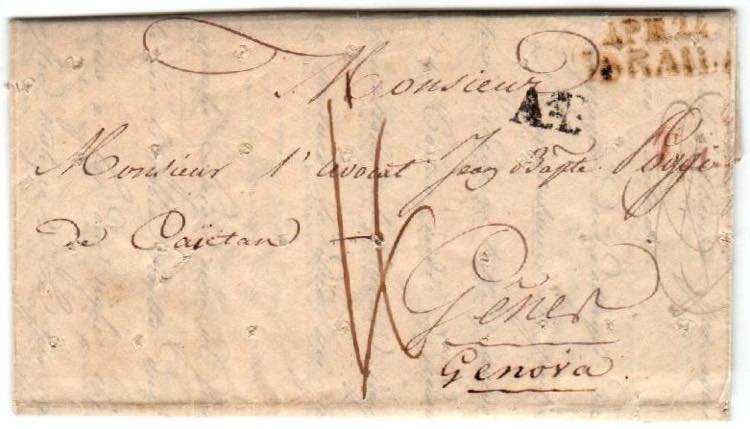 APR. 24
IBRAILA
Monsieur
A.T.
Monsieur l'avocat Jean Bapte. Poggi
de Caÿetan
Gênes
Genova.